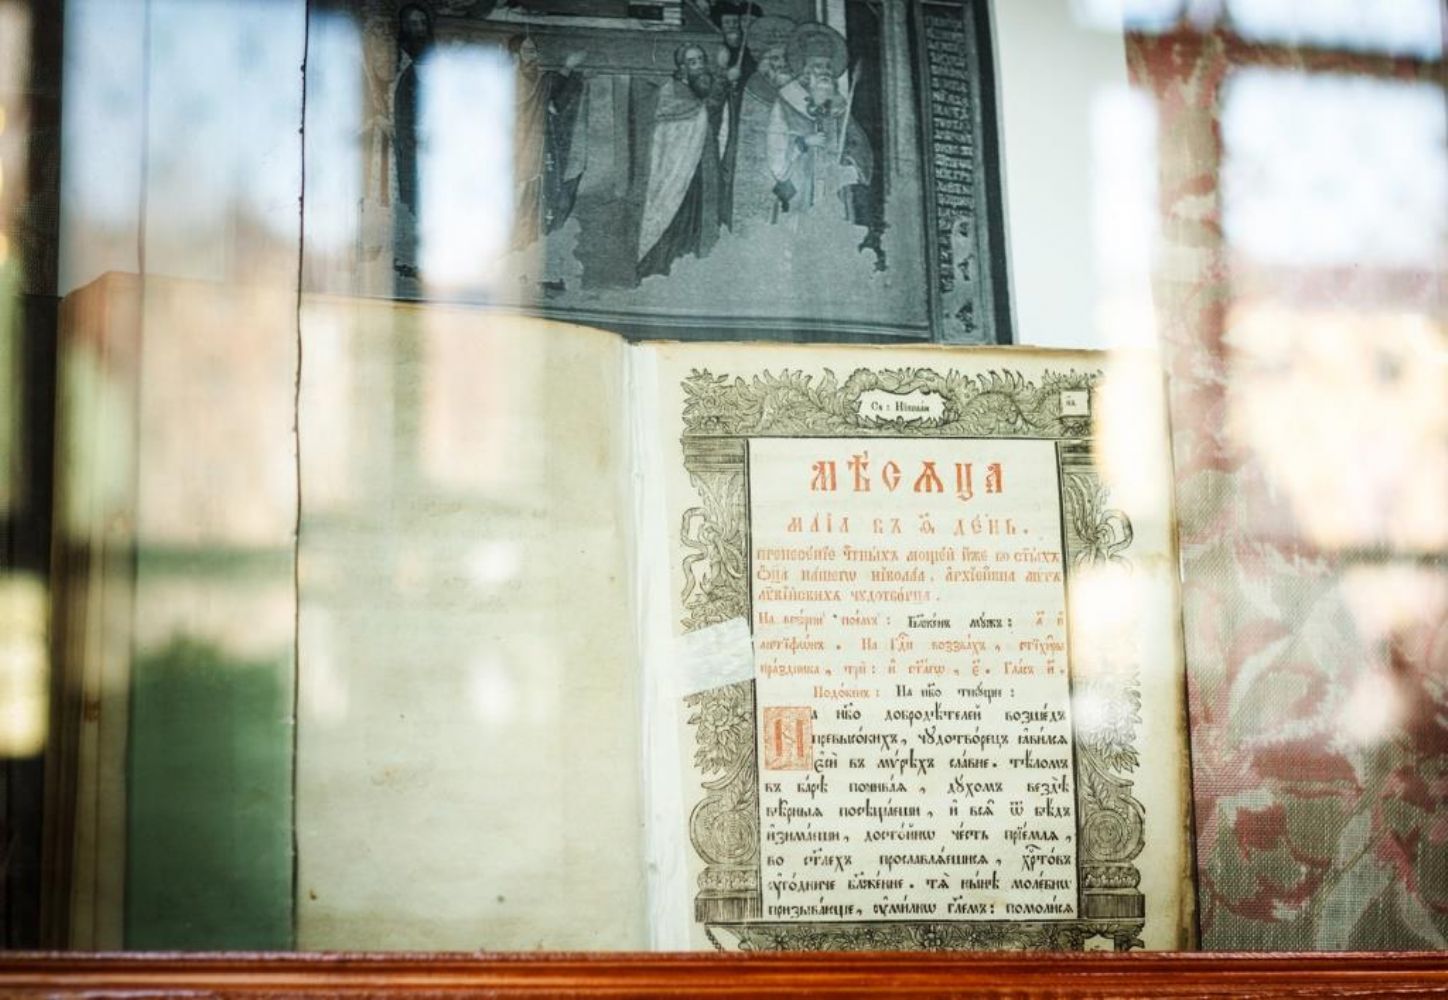 Ст: Нїколаи
МѢСѦЦА
МАІА ВЪ Ѳ҃ ДЕ́НЬ.
пренесе́нїе че҃тны́хъ моще́й и҆́же во ст҃ы́хъ
ѻ҆ц҃а̀ на́шегѡ нїкола́а, а҆рхїепⷭ҇кпа мѵръ
лѷкі́йскихъ чꙋдотво́рца.
На вече́рни пое́мъ: Бл҃же́нъ мꙋ́жъ: а҃ й
а҆нтїфѡ́нъ. На Гдⷭ҇и воззва́хъ, стїхи̑ры
пра́здника, трѝ: и҆ ст҃а́гѡ, є҃. Гла́съ и҃.
Подо́бенъ: На нб҃о текꙋ́щє:
На нб҃о доброд́ѣтелей возше́дъ
превысо́кихъ, чꙋдотво́рецъ ꙗ҆ви́лсѧ
є҆сѝ въ мѵ́рѣхъ сла́вне. тѣ́ломъ
въ ба́рѣ почива́ѧ, дꙋ́хомъ вездѣ̀
вѣ̑рныѧ посѣща́еши, и҆ всѧ̑ ѿ бѣ́дъ
и҆зима́еши, досто́йнѡ че́сть прїе́млѧ,
во ст҃лехъ прославлѧ́ешисѧ, хрⷭ҇то́въ
ᲂу҆го́дниче бл҃же́нне. тѧ̀ ны́нѣ моле́бнѡ
призыва́юще, ᲂу҆ми́льнѡ гл҃емъ: помоли́сѧ